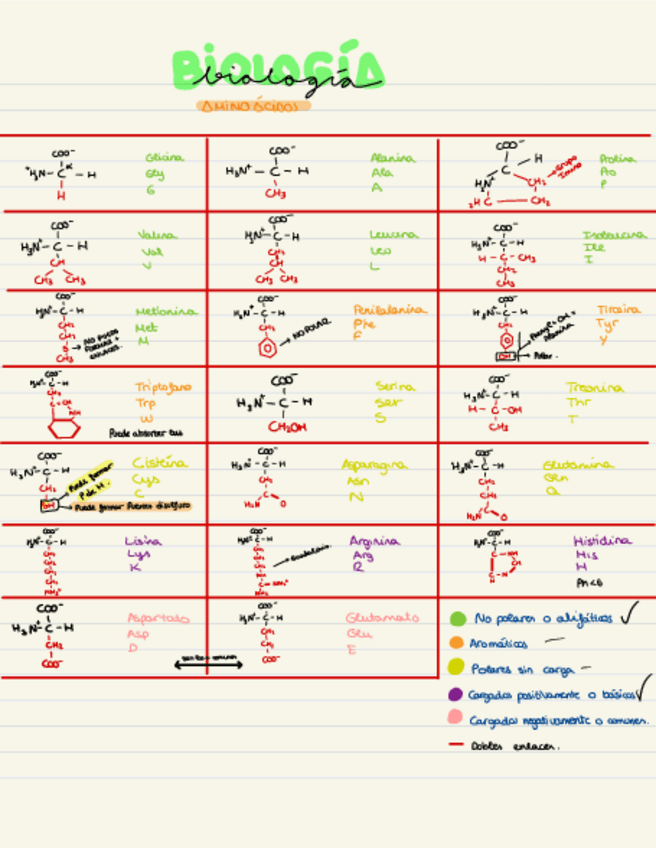 BIOLOGÍA
biología
AMINOÁCIDOS
COO⁻
⁺H₃N-C-H
α
H
Glicina
Gly
G
COO⁻
H₃N⁺-C-H
CH₃
Alanina
Ala
A
COO⁻
H
H₂N⁺
CH₂
H₂C
CH₂
Grupo
Imino
Prolina
Pro
P
COO⁻
H₃N⁺-C-H
CH
CH₃ CH₃
Valina
Val
V
COO⁻
H₃N⁺-C-H
CH₂
CH
CH₃ CH₃
Leucina
Leu
L
COO⁻
H₃N⁺-C-H
H-C-CH₃
CH₂
CH₃
Isoleucina
Ile
I
COO⁻
H₃N⁺-C-H
CH₂
CH₂
S
CH₃
Metionina
Met
M
COO⁻
H₃N⁺-C-H
CH₂
NO POLAR
Fenilalanina
Phe
F
COO⁻
H₃N⁺-C-H
CH₂
OH
Polar.
Tirosina
Tyr
Y
COO⁻
H₃N⁺-C-H
CH₂
C=CH
NH
Triptofano
Trp
W
Puede absorber luz
COO⁻
H₃N⁺-C-H
CH₂OH
Serina
Ser
S
COO⁻
H₃N⁺-C-H
H-C-OH
CH₃
Treonina
Thr
T
COO⁻
H₃N⁺-C-H
CH₂
Puede formar
P. de H.
Puede formar Puentes disulfuro
Cisteína
Cys
C
COO⁻
H₃N⁺-C-H
CH₂
C
H₂N O
Asparagina
Asn
N
COO⁻
H₃N⁺-C-H
CH₂
CH₂
C
H₂N O
Glutamina
Gln
Q
COO⁻
H₃N⁺-C-H
CH₂
CH₂
CH₂
CH₂
NH₃⁺
Lisina
Lys
K
COO⁻
H₃N⁺-C-H
Arginina
Arg
R
COO⁻
H₃N⁺-C-H
Histidina
His
H
PH<6
COO⁻
H₃N⁺-C-H
CH₂
COO⁻
Aspartato
Asp
D
COO⁻
H₃N⁺-C-H
CH₂
CH₂
COO⁻
Glutamato
Glu
E
No polares o alifáticos
Aromáticos
Polares sin carga
Cargados positivamente o básicos
Cargados negativamente o
Dobles enlaces.